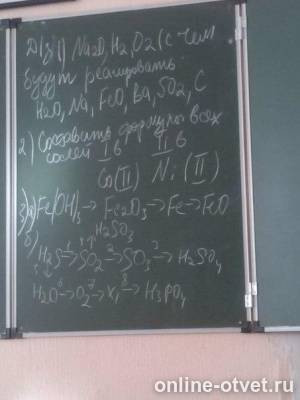 Д/з 1) Na2O, H2, O2 (с чем
будут реагировать
H2O, Na, FeO, Ba, SO2, C
2) Составить формулы всех
солей I в II в
Co(II) Ni(II)
3) а) Fe(OH)3 → Fe2O3 → Fe → FeO
б) H2SO3
H2S →1 SO2 →2 SO3 →3 H2SO4
H2O →6 O2 →7 x, →8 H3PO4
online-otvet.ru